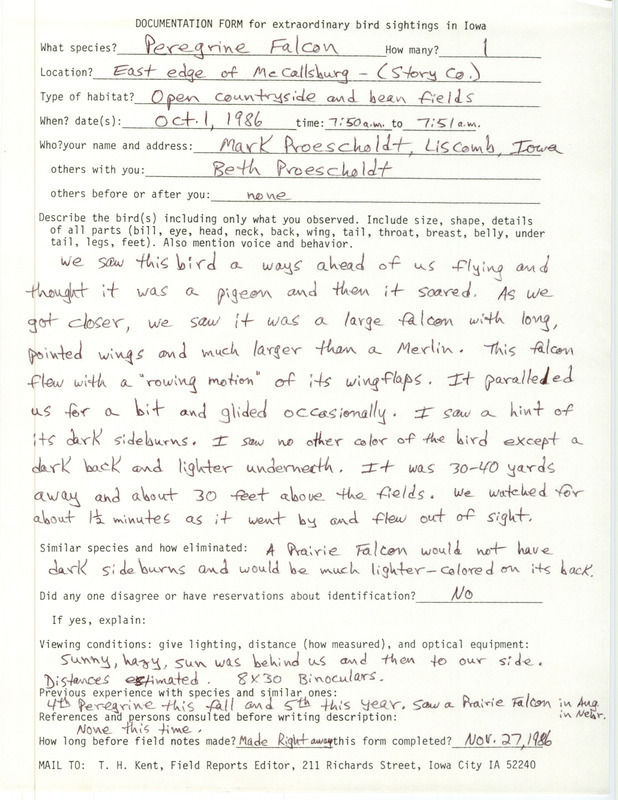 DOCUMENTATION FORM for extraordinary bird sightings in Iowa
What species? Peregrine Falcon How many? 1
Location? East edge of McCallsburg - (Story Co.)
Type of habitat? Open countryside and bean fields
When? date(s): Oct. 1, 1986 time: 7:50 a.m. to 7:51 a.m.
Who? your name and address: Mark Proescholdt, Liscomb, Iowa
others with you: Beth Proescholdt
others before or after you: none
Describe the bird(s) including only what you observed. Include size, shape, details
of all parts (bill, eye, head, neck, back, wing, tail, throat, breast, belly, under
tail, legs, feet). Also mention voice and behavior.
We saw this bird a ways ahead of us flying and
thought it was a pigeon and then it soared. As we
got closer, we saw it was a large falcon with long,
pointed wings and much larger than a Merlin. This falcon
flew with a "rowing motion" of its wingflaps. It paralleded
us for a bit and glided occasionally. I saw a hint of
its dark sideburns. I saw no other color of the bird except a
dark back and lighter underneath. It was 30-40 yards
away and about 30 feet above the fields. We watched for
about 1½ minutes as it went by and flew out of sight.
Similar species and how eliminated: A Prairie Falcon would not have
dark sideburns and would be much lighter-colored on its back.
Did any one disagree or have reservations about identification? No
If yes, explain:
Viewing conditions: give lighting, distance (how measured), and optical equipment:
Sunny, hazy, sun was behind us and then to our side.
Distances estimated. 8X30 Binoculars.
Previous experience with species and similar ones:
4th Peregrine this fall and 5th this year. Saw a Prairie Falcon in Aug.
in Nebr.
References and persons consulted before writing description:
None this time.
How long before field notes made? Made Right away this form completed? Nov. 27, 1986
MAIL TO: T. H. Kent, Field Reports Editor, 211 Richards Street, Iowa City IA 52240